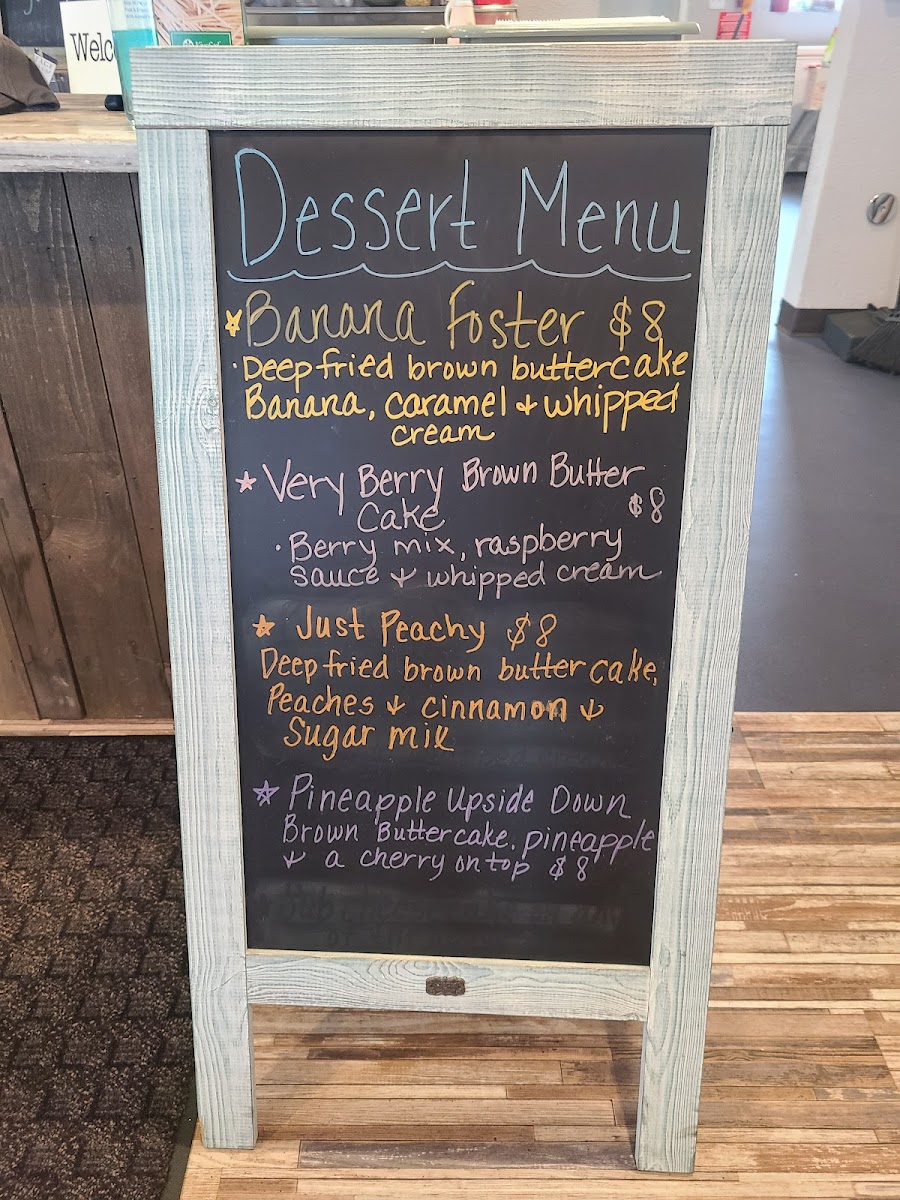 Welc
Dessert Menu
Banana Foster $8
· Deep fried brown buttercake
Banana, caramel & whipped
cream
Very Berry Brown Butter
Cake $8
· Berry mix, raspberry
sauce & whipped cream
Just Peachy $8
Deep fried brown butter cake,
Peaches & cinnamon &
Sugar mix
Pineapple Upside Down
Brown Buttercake. pineapple
& a cherry on top $8